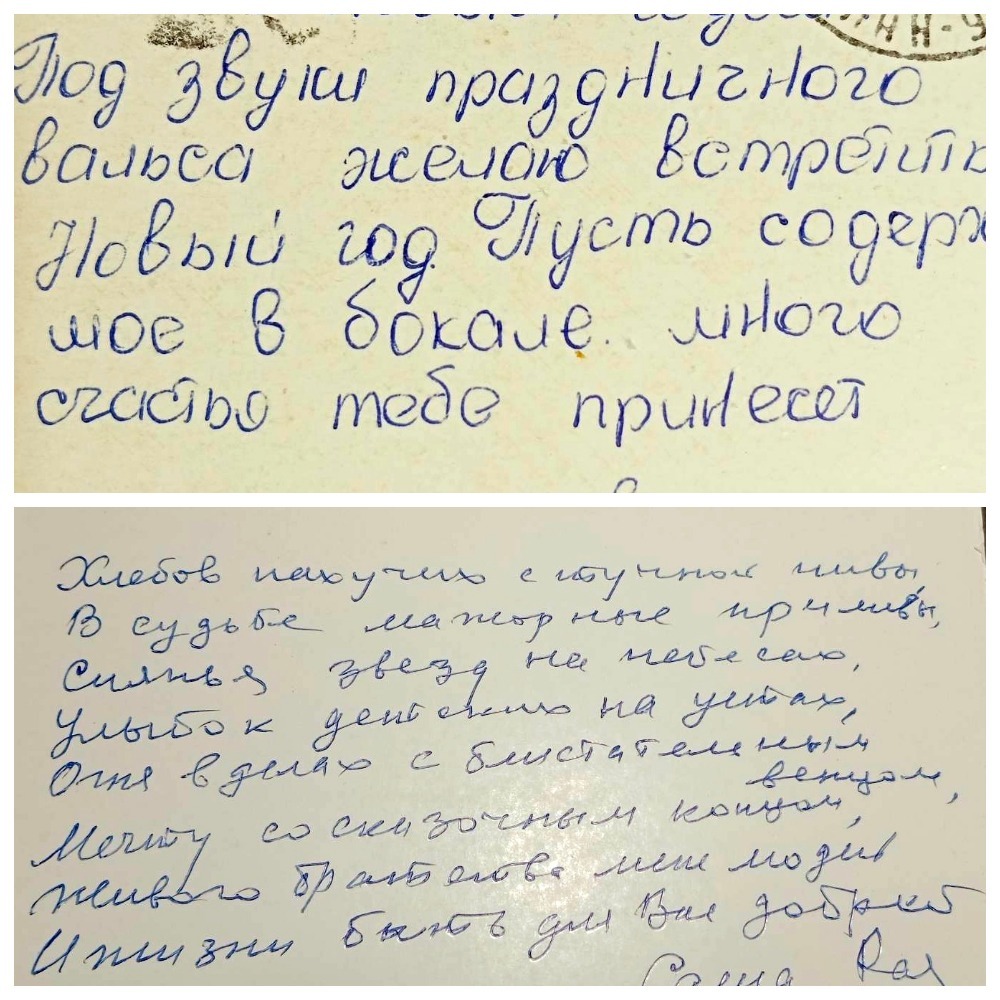 Под звуки праздничного
вальса желаю встретить
Новый год. Пусть содерж
мое в бокале. много
счастья тебе принесет
Хлебов пахучих с тучной нивы,
В судьбе мажорные приливы,
Сиянья звезд на небесах,
Улыбок детских на устах,
Огня в делах с блистательным
венцом,
Мечту со сказочным концом,
Живого братства меж людей
И жизни быть для Вас доброй
Рая